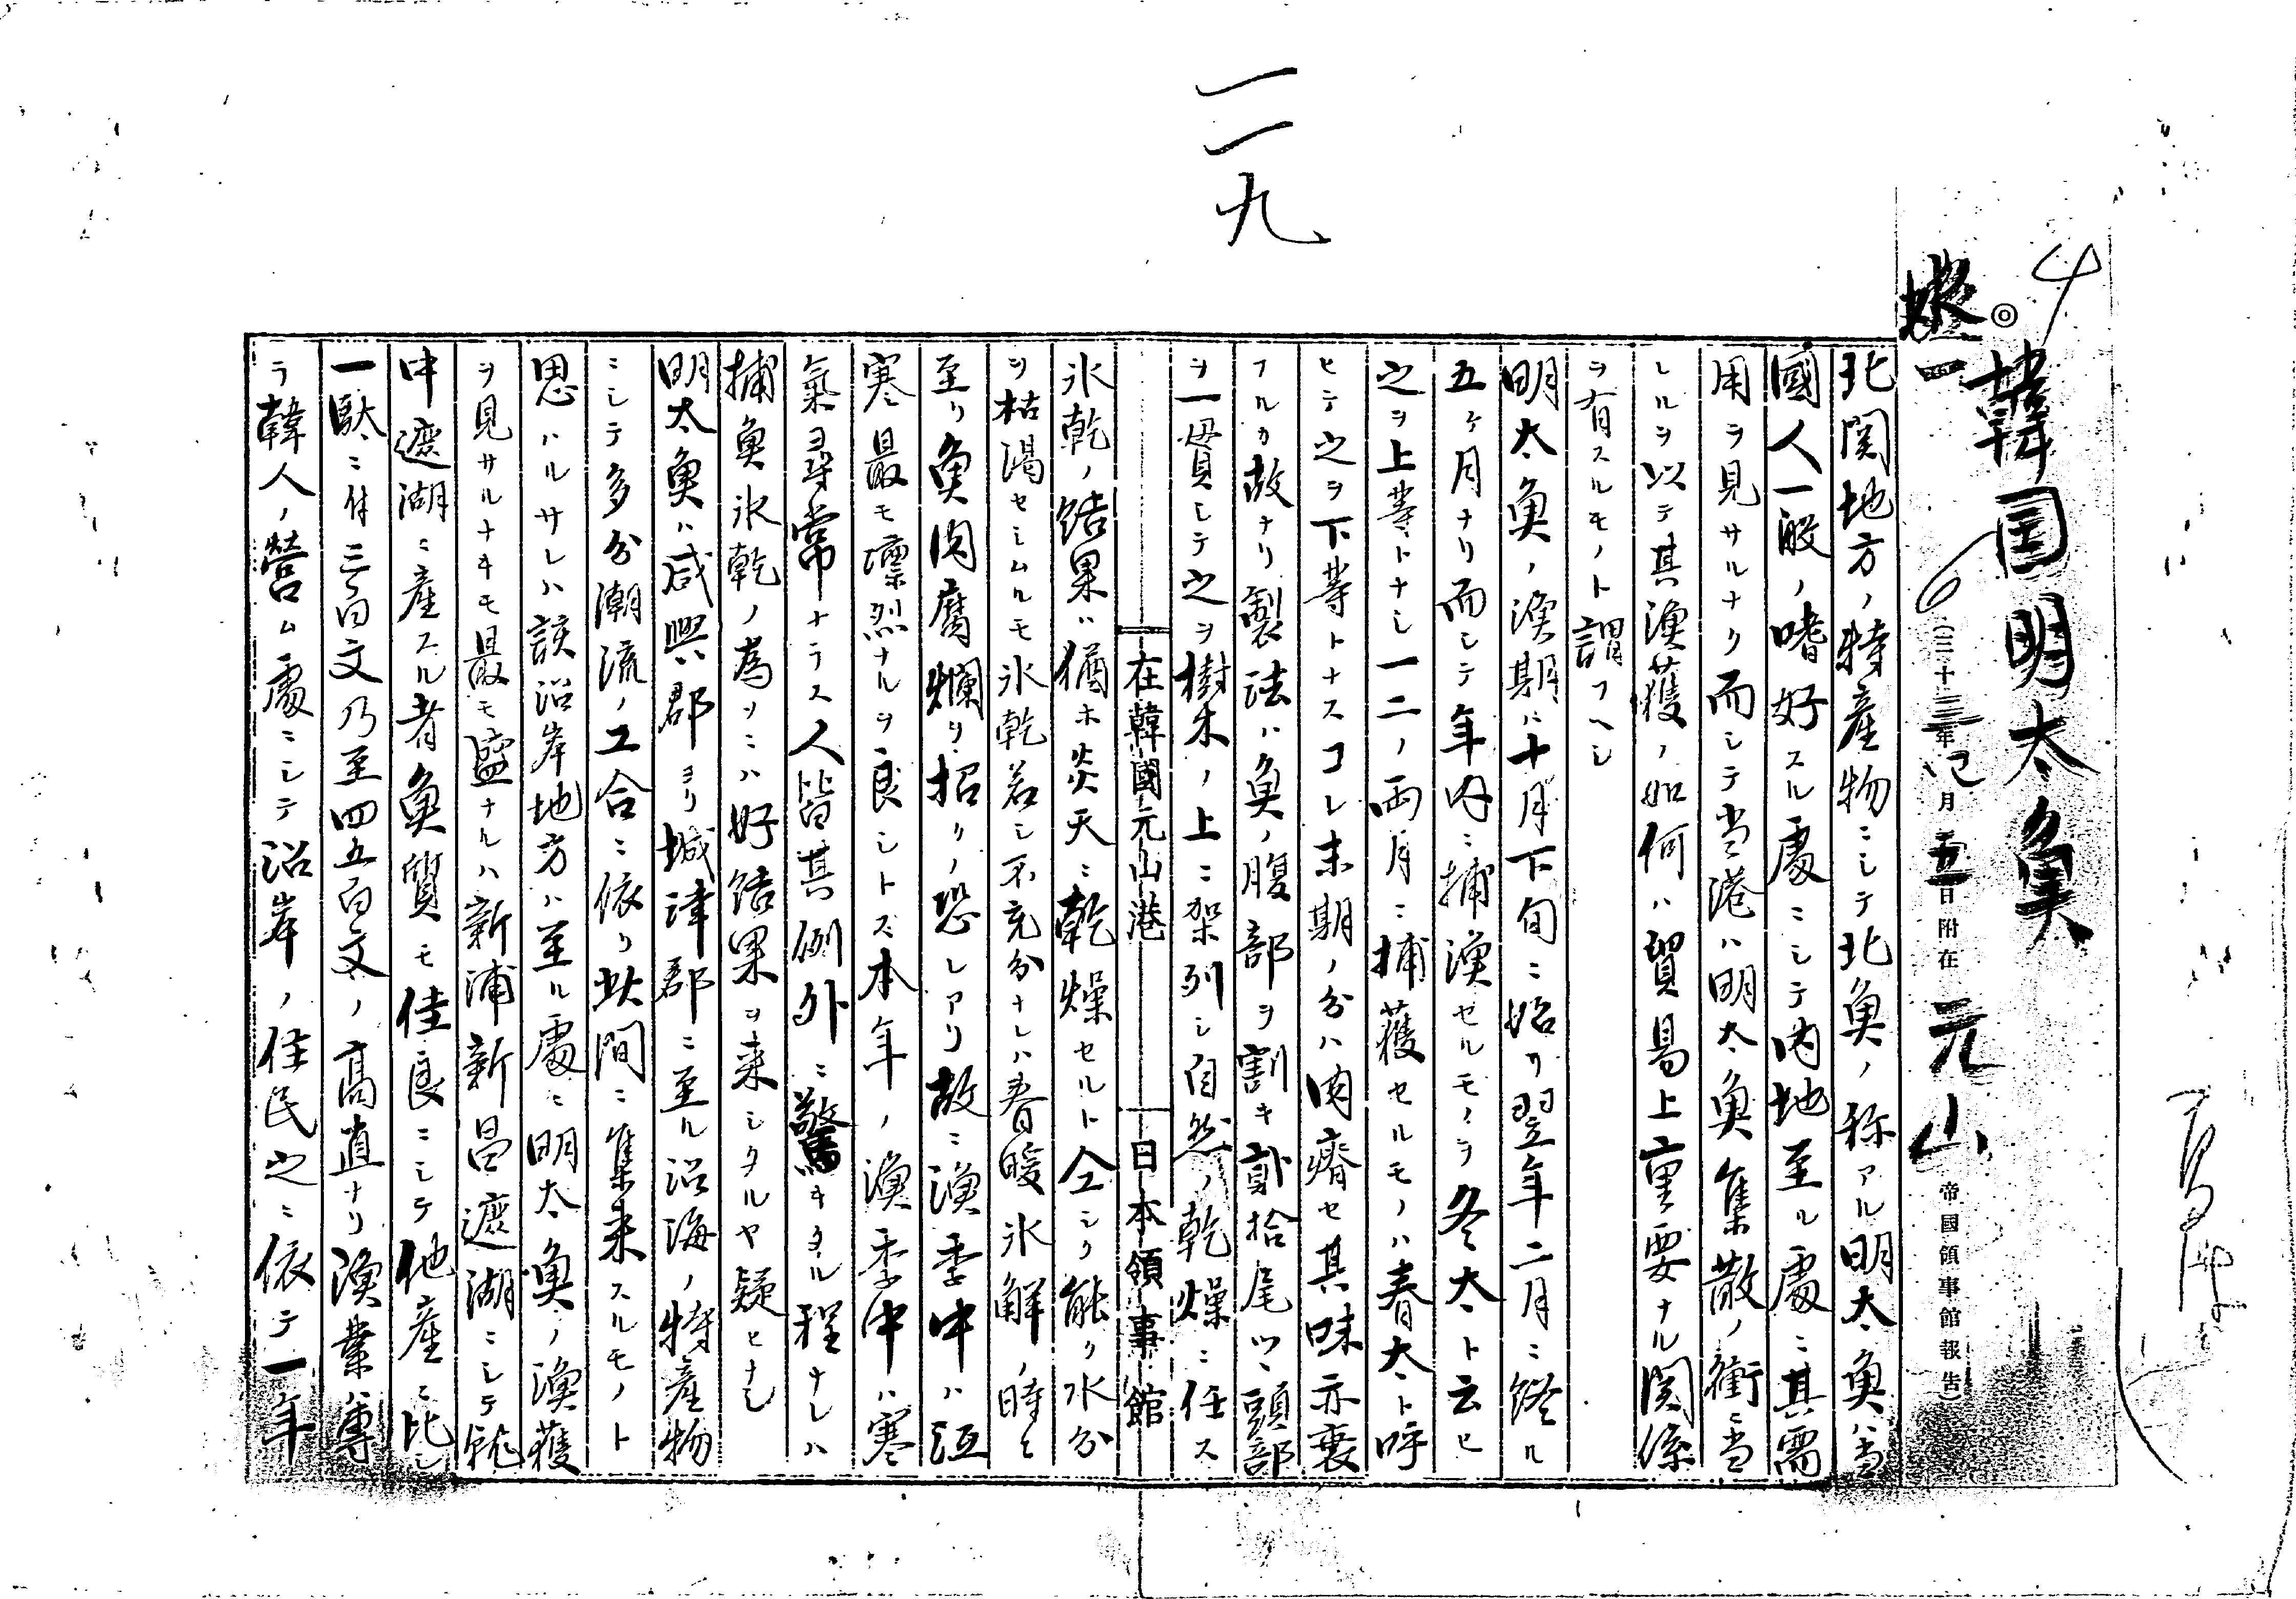 一一九
4
◎韓国明太魚
6
(三十三年八月五日附在元山帝國領事館報告)
北関地方ノ特産物ニシテ北魚ノ称アル明太魚ハ当
國人一般ノ嗜好スル處ニシテ内地至ル處ニ其需
用ヲ見サルナク而シテ当港ハ明太魚集散ノ衝ニ当
レルヲ以テ其漁獲ノ如何ハ貿易上重要ナル関係
ヲ有スルモノト謂フヘシ
明太魚ノ漁期ハ十月下旬ニ始リ翌年二月ニ終ル
五ヶ月ナリ而シテ年内ニ捕漁セルモノヲ冬太ト云ヒ
之ヲ上等トナシ一二ノ両月ニ捕獲セルモノハ春太ト呼
ヒテ之ヲ下等トナスコレ末期ノ分ハ肉瘠セ其味亦衰
フルカ故ナリ製法ハ魚ノ腹部ヲ割キ貳拾尾ツヽ頭部
ヲ一貫シテ之ヲ樹木ノ上ニ架列シ自然ノ乾燥ニ任ス
在韓國元山港 日本領事館
氷乾ノ結果ハ猶ホ炎天ニ乾燥セルト仝シク能ク水分
ヲ枯渇セシムルモ氷乾若シ不充分ナレハ春暖氷解ノ時ニ
至リ魚肉腐爛ヲ招クノ恐レアリ故ニ漁季中ハ沍
寒最モ凛烈ナルヲ良シトス本年ノ漁季中ハ寒
氣尋常ナラス人皆其例外ニ驚キタル程ナレハ
捕魚氷乾ノ為ソニハ好結果ヲ来シタルヤ疑ヒナシ
明太魚ハ咸興郡ヨリ城津郡ニ至ル沿海ノ特産物
ニシテ多分潮流ノ工合ニ依リ此間ニ集来スルモノト
思ハルサレハ該沿岸地方ハ至ル處ニ明太魚ノ漁獲
ヲ見サルナキモ最モ盛ナルハ新浦新昌遮湖ニシテ就
中遮湖ニ産スル者魚質モ佳良ニシテ他産ニ比シ
一駄ニ付三百文乃至四五百文ノ高直ナリ漁業ハ専
ラ韓人ノ営ム處ニシテ沿岸ノ住民之ニ依テ一年